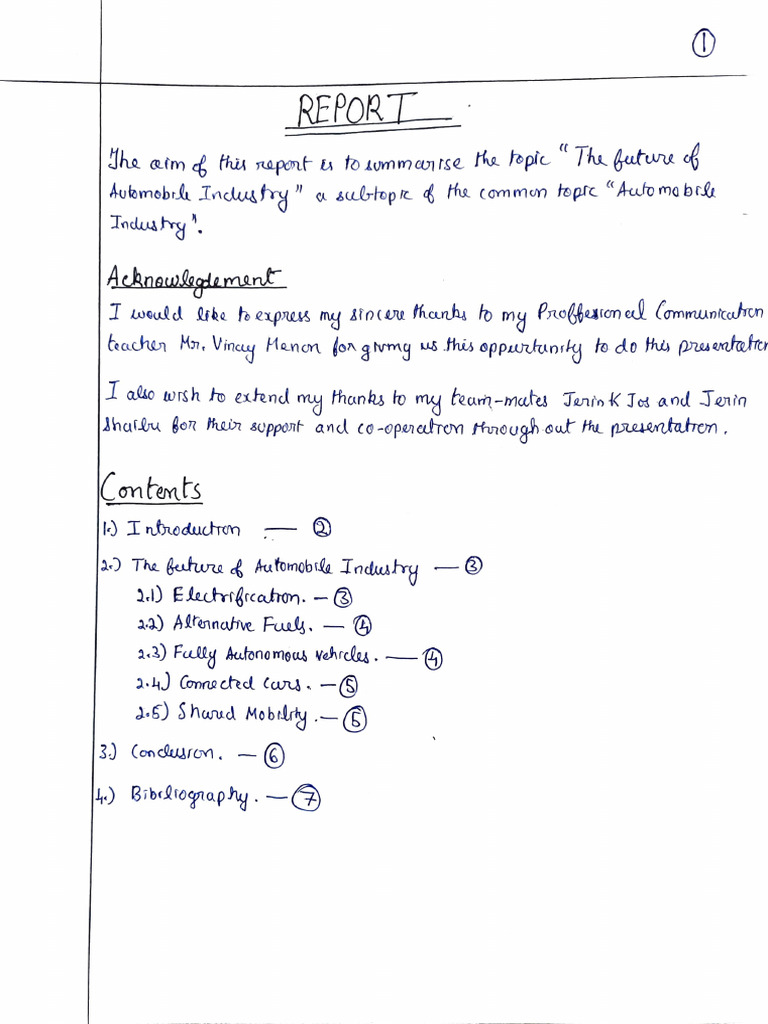 ①
REPORT
The aim of this report is to summarise the topic "The future of
Automobile Industry" a subtopic of the common topic "Automobile
Industry".
Acknowlegdement
I would like to express my sincere thanks to my Proffessional Communication
teacher Mr. Vinay Menon for giving us this oppurtunity to do this presentation
I also wish to extend my thanks to my team-mates Jerin K Jos and Jerin
Shaibu for their support and co-operation through out the presentation.
Contents
1.) Introduction — ②
2.) The future of Automobile Industry — ③
2.1) Electrification. — ③
2.2) Alternative Fuels. — ④
2.3) Fully Autonomous vehicles. — ④
2.4) Connected Cars. — ⑤
2.5) Shared Mobility. — ⑤
3.) Conclusion. — ⑥
4.) Bibeliography. — ⑦